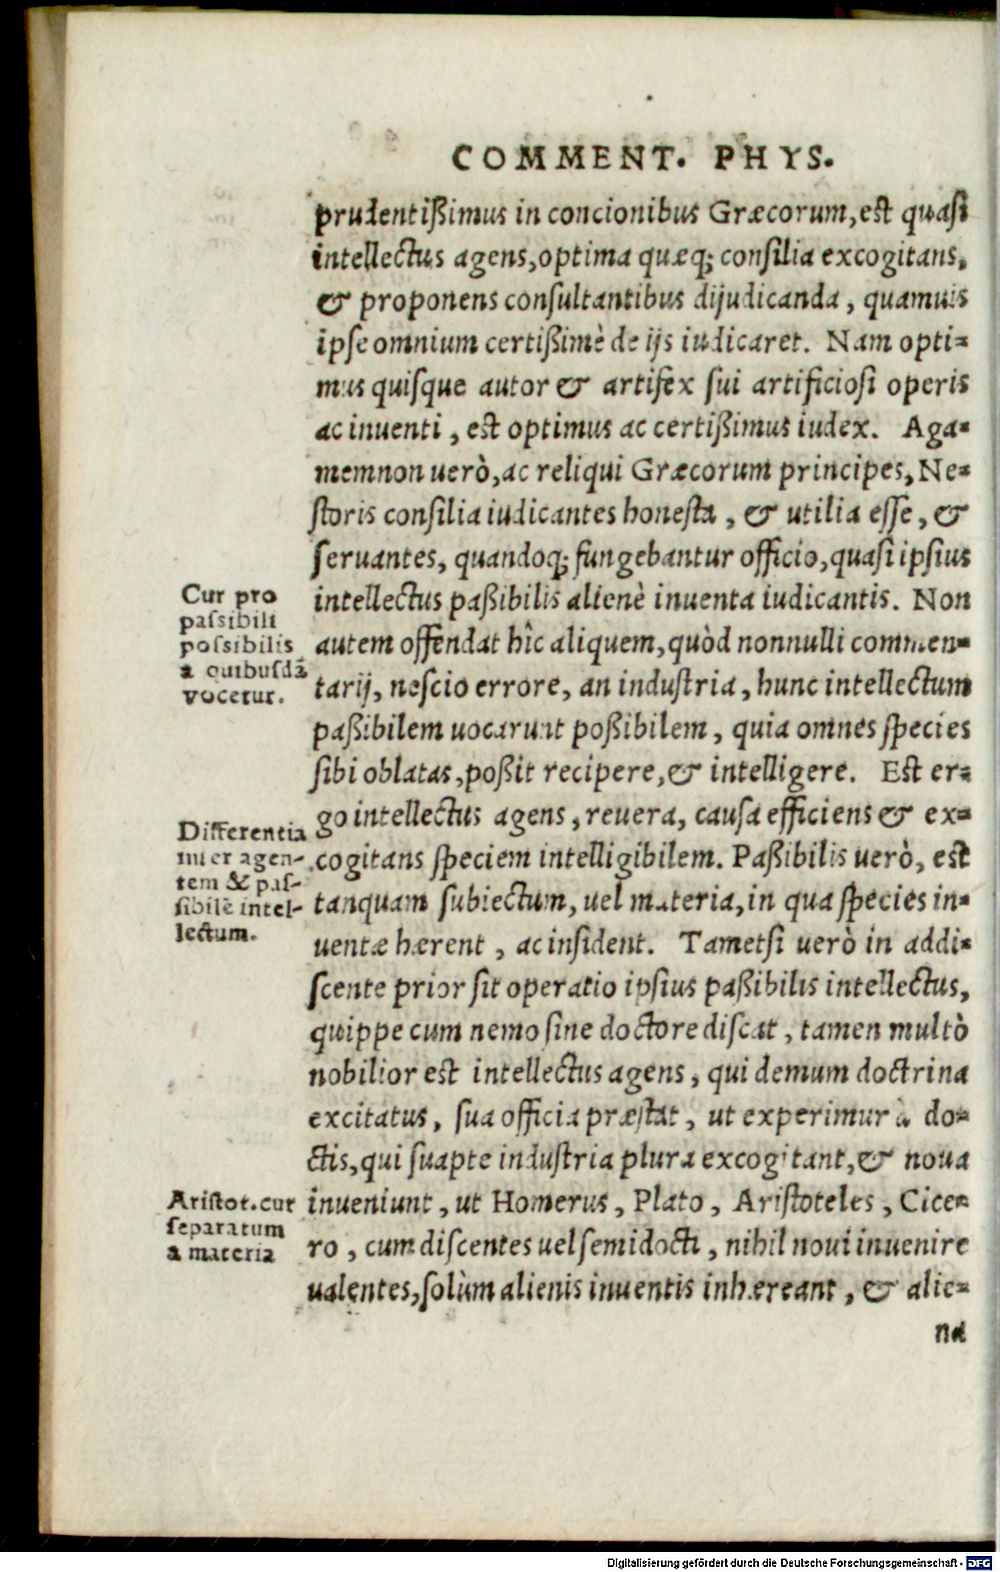 COMMENT. PHYS.
prudentißimus in concionibus Græcorum, est quasi
intellectus agens, optima quæq; consilia excogitans,
& proponens consultantibus dijudicanda, quamuis
ipse omnium certißimè de ijs iudicaret. Nam opti-
mus quisque autor & artifex sui artificiosi operis
ac inuenti, est optimus ac certißimus iudex. Aga-
memnon uerò, ac reliqui Græcorum principes, Ne-
storis consilia iudicantes honesta, & utilia esse, &
seruantes, quandoq; fungebantur officio, quasi ipsius
intellectus paßibilis alienè inuenta iudicantis. Non
autem offendat hîc aliquem, quòd nonnulli commen-
tarij, nescio errore, an industria, hunc intellectum
paßibilem uocarunt poßibilem, quia omnes species
sibi oblatas, poßit recipere, & intelligere. Est er-
go intellectus agens, reuera, causa efficiens & ex-
cogitans speciem intelligibilem. Paßibilis uerò, est
tanquam subiectum, uel materia, in qua species in-
uentæ hærent, ac insident. Tametsi uerò in addi-
scente prior sit operatio ipsius paßibilis intellectus,
quippe cum nemo sine doctore discat, tamen multò
nobilior est intellectus agens, qui demum doctrina
excitatus, sua officia præstat, ut experimur à do-
ctis, qui suapte industria plura excogitant, & noua
inueniunt, ut Homerus, Plato, Aristoteles, Cice-
ro, cum discentes uel semidocti, nihil noui inuenire
ualentes, solùm alienis inuentis inhæreant, & alie-
na
Cur pro
passibili
possibilis
a quibusdā
vocetur.
Differentia
inter agen-
tem & pas-
sibilē intel-
lectum.
Aristot. cur
separatum
a materia
Digitalisierung gefördert durch die Deutsche Forschungsgemeinschaft - DFG